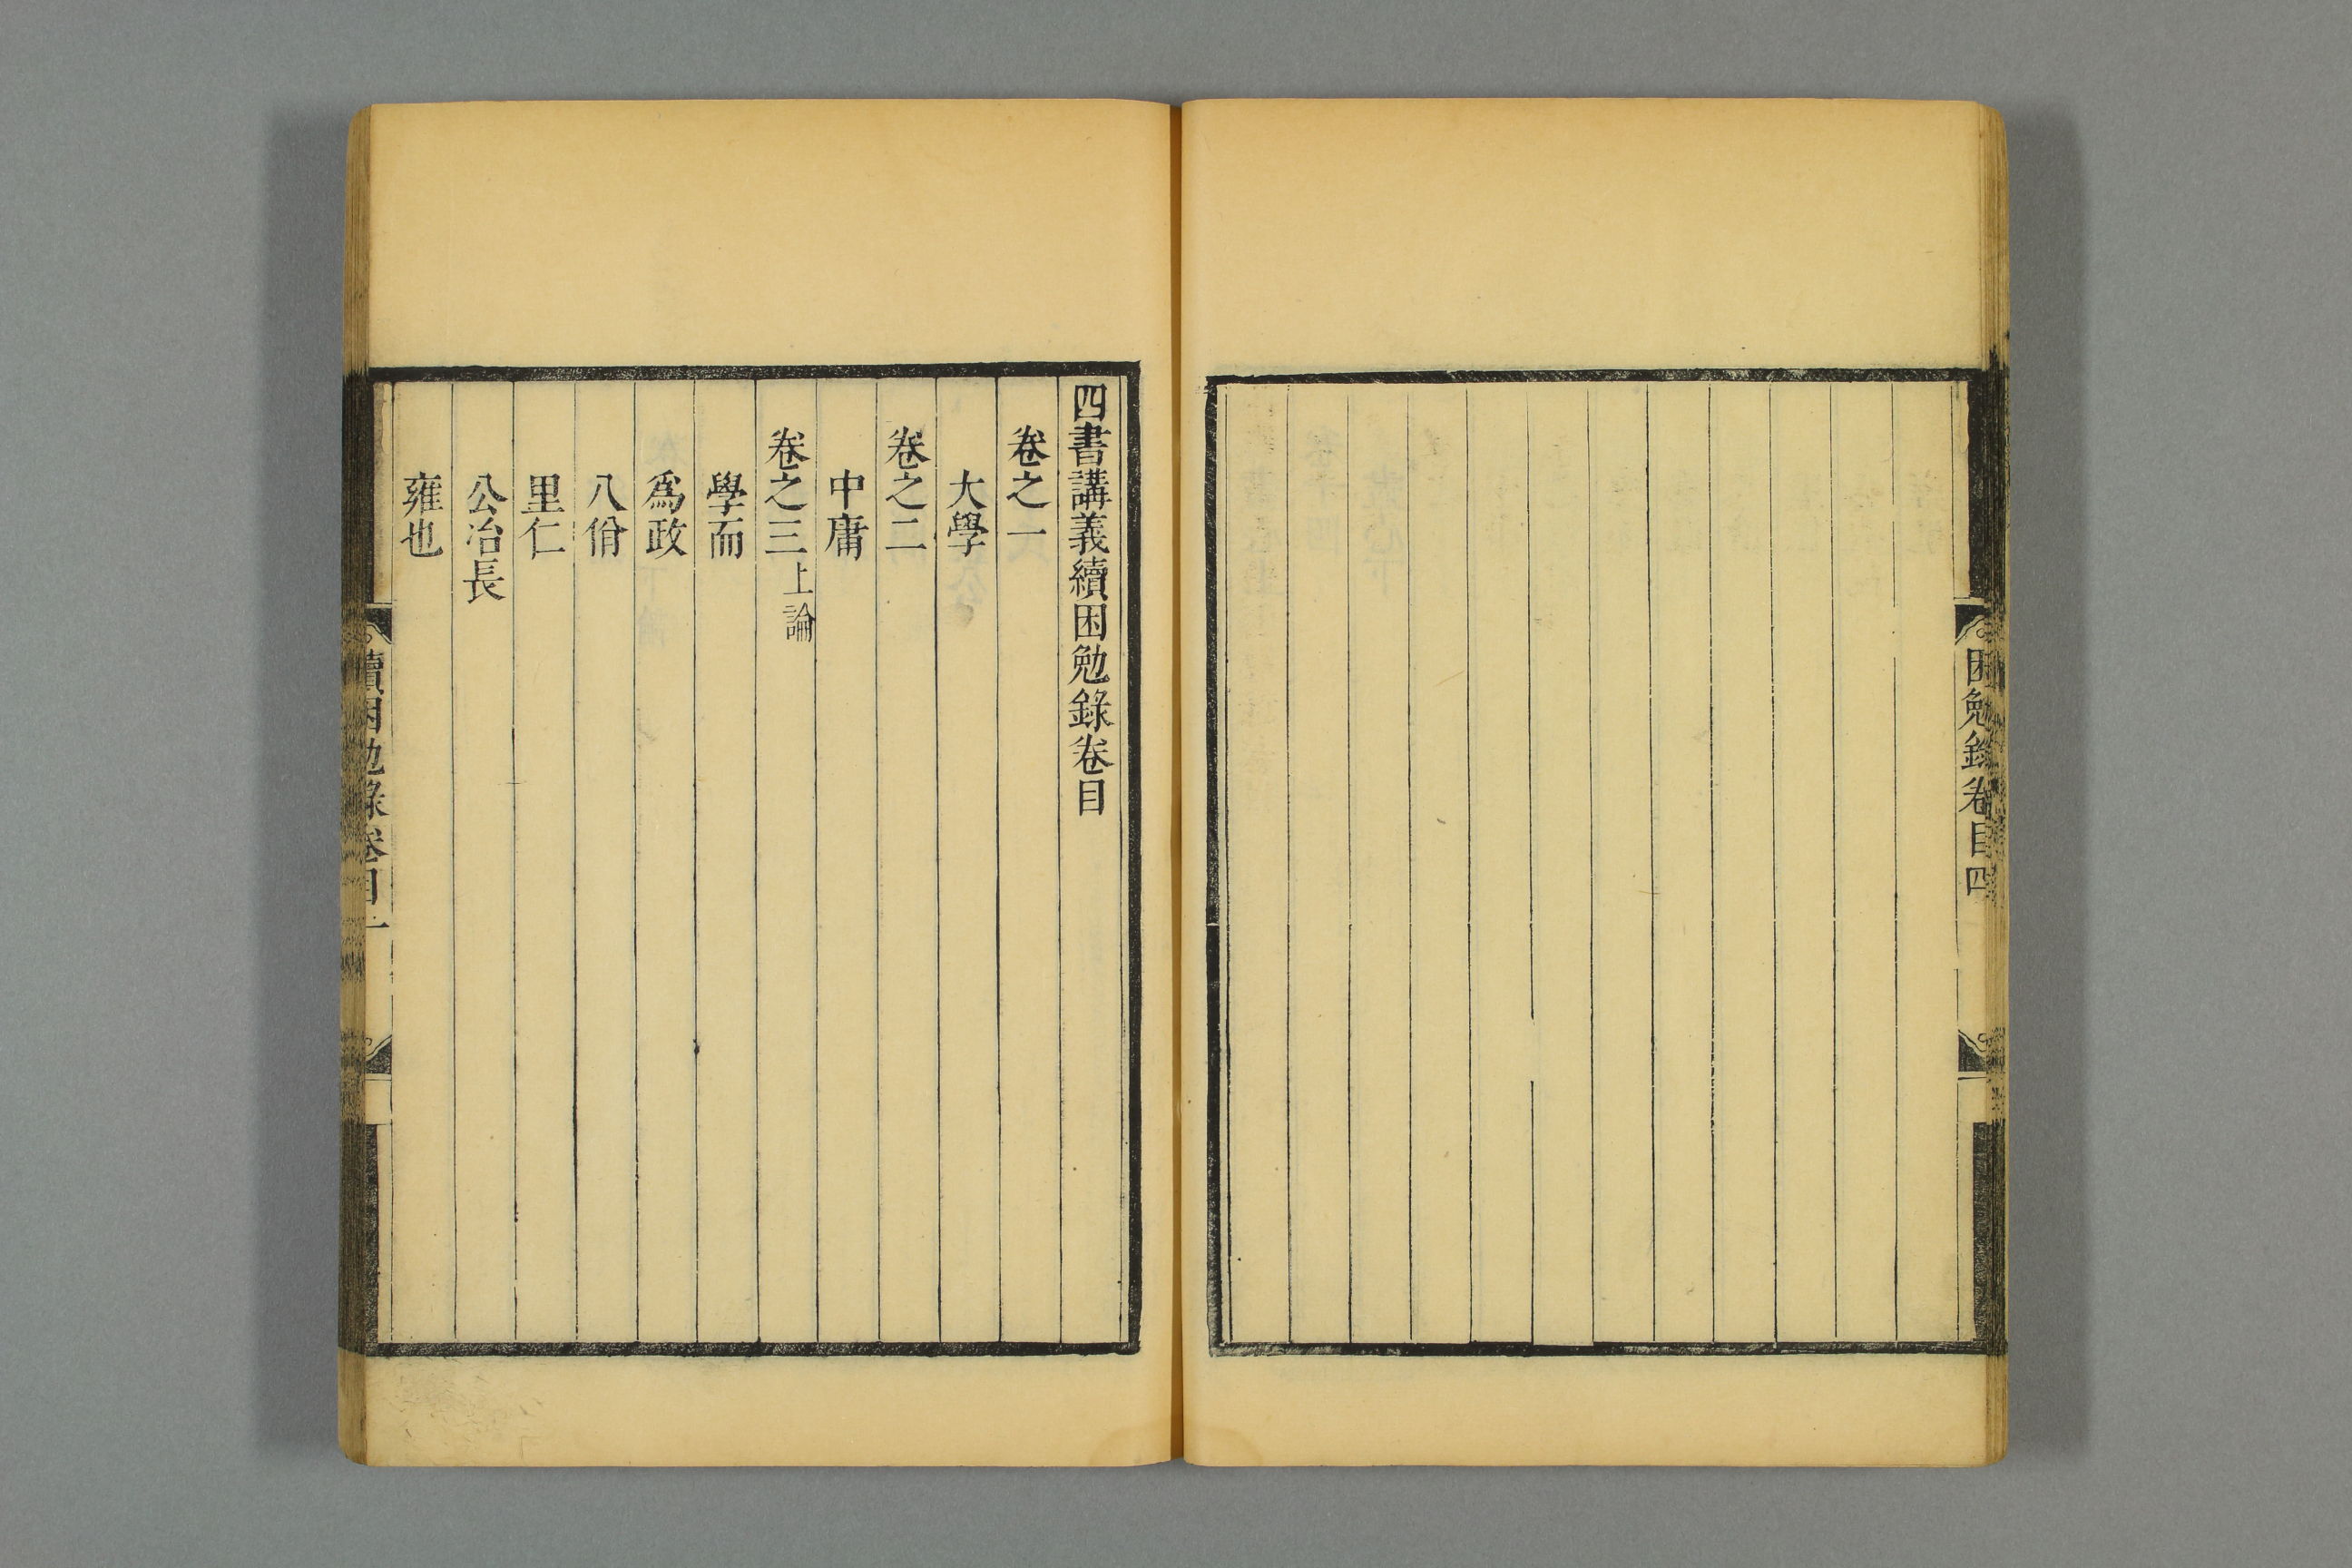 困勉錄卷目四
四書講義續困勉錄卷目
卷之一
大學
卷之二
中庸
卷之三上論
學而
爲政
八佾
里仁
公冶長
雍也
續困勉錄卷目一